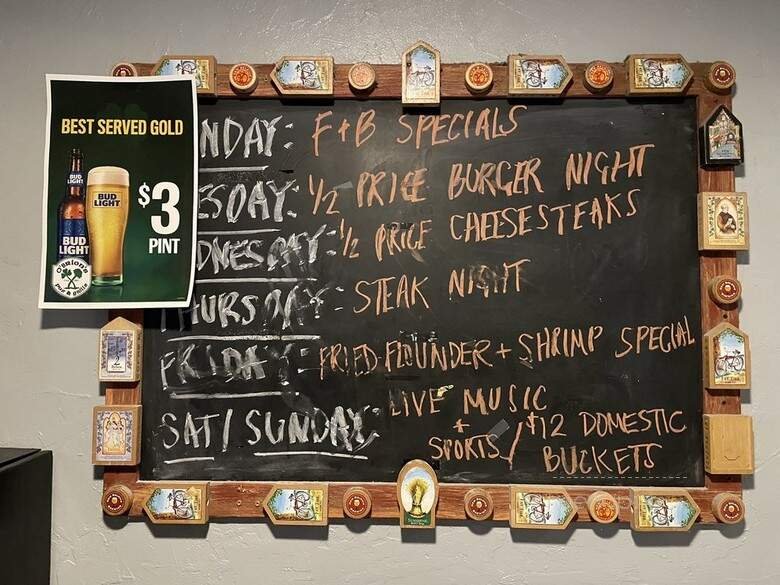 BEST SERVED GOLD
BUD LIGHT
BUD LIGHT
BUD LIGHT
$3
PINT
O'Brion's
Pub & Grille
NDAY: F+B SPECIALS
ESDAY: 1/2 PRICE BURGER NIGHT
DNESDAY: 1/2 PRICE CHEESESTEAKS
THURSDAY: STEAK NIGHT
FRIDAY: FRIED FLOUNDER + SHRIMP SPECIAL
SAT/SUNDAY: LIVE MUSIC
+
SPORTS / $12 DOMESTIC
BUCKETS